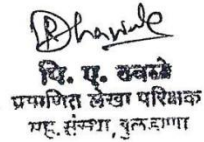 Dhawale
वि. ए. ढवळे
प्रमाणित लेखा परिक्षक
सह. संस्था, बुलडाणा